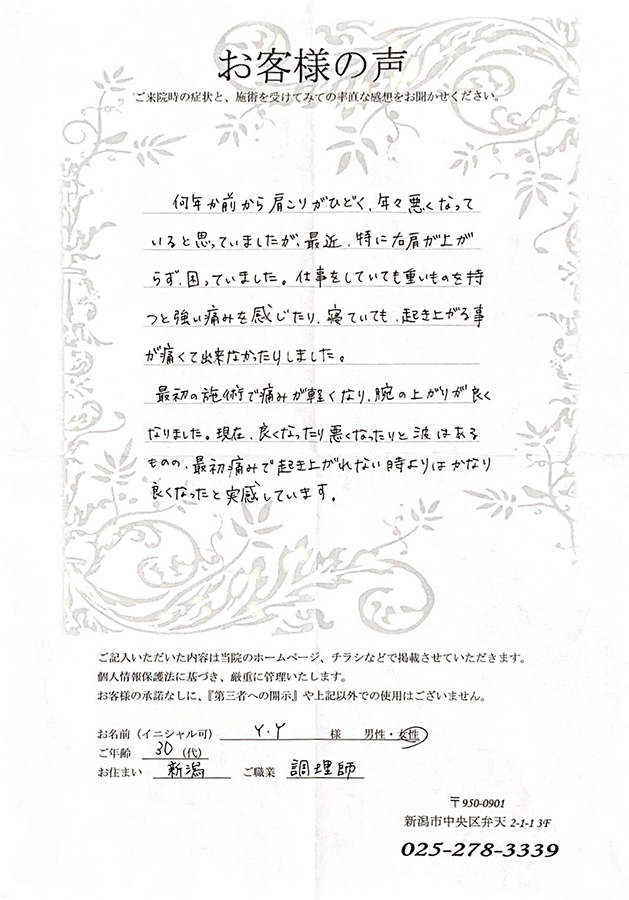 お客様の声
ご来院時の症状と、施術を受けてみての率直な感想をお聞かせください。
何年か前から肩こりがひどく、年々悪くなって
いると思っていましたが、最近、特に右肩が上が
らず、困っていました。仕事をしていても重いものを持
つと強い痛みを感じたり、寝ていても、起き上がる事
が痛くて出来なかったりしました。
最初の施術で痛みが軽くなり、腕の上がりが良く
なりました。現在、良くなったり悪くなったりと波はある
ものの、最初痛みで起き上がれない時よりはかなり
良くなったと実感しています。
ご記入いただいた内容は当院のホームページ、チラシなどで掲載させていただきます。
個人情報保護法に基づき、厳重に管理いたします。
お客様の承諾なしに、『第三者への開示』や上記以外での使用はございません。
お名前(イニシャル可) Y.Y 様 男性・女性
ご年齢 30 (代)
お住まい 新潟 ご職業 調理師
〒950-0901
新潟市中央区弁天 2-1-1 3F
025-278-3339